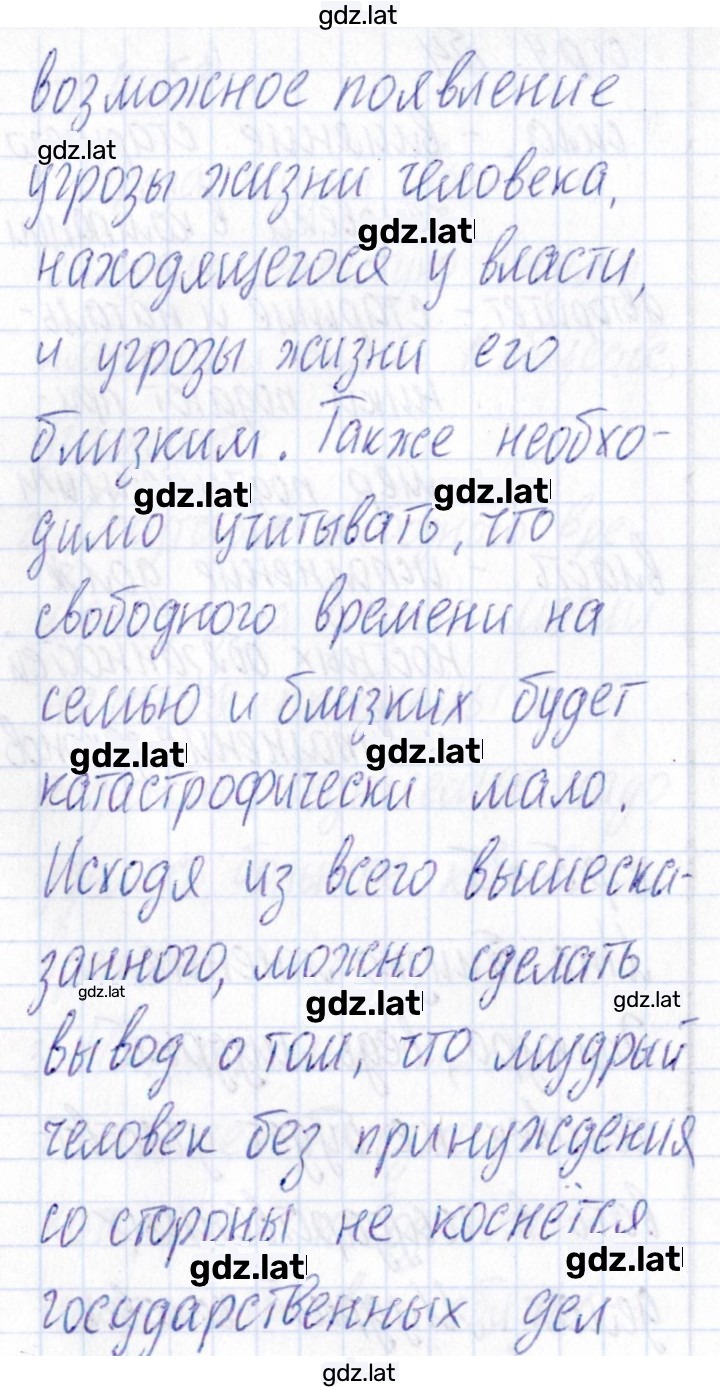 gdz.lat
возможное появление
gdz.lat
угрозы жизни человека,
gdz.lat
находящегося у власти,
и угрозы жизни его
близким. Также необхо-
gdz.lat gdz.lat
димо учитывать, что
свободного времени на
семью и близких будет
gdz.lat gdz.lat
катастрофически мало.
Исходя из всего вышеска-
занного, можно сделать
gdz.lat gdz.lat gdz.lat
вывод о том, что мудрый
человек без принуждения
со стороны не коснётся
gdz.lat gdz.lat
государственных дел
gdz.lat